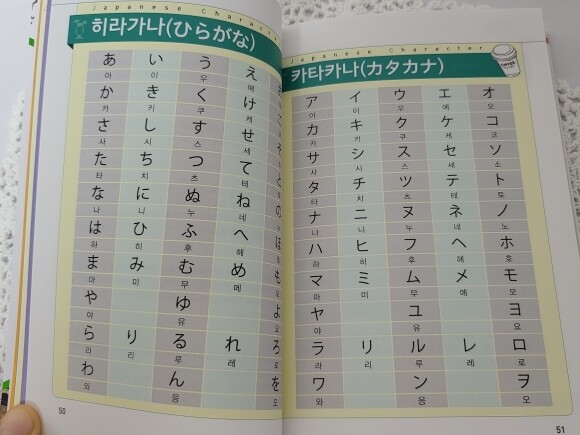 Japanese Character
히라가나(ひらがな)
あ い う え
아 이 우 에
か き く け
카 키 쿠 케
さ し す せ
사 시 스 세
た ち つ て
타 치 츠 테
な に ぬ ね の
나 니 누 네
は ひ ふ へ ほ
하 히 후 헤
ま み む め も
마 미 무 메
や ゆ よ
야 유
ら り る れ ろ
라 리 루 레 로
わ ん を
와 응 오
50
Japanese Character
카타카나(カタカナ)
ア イ ウ エ オ
아 이 우 에 오
カ キ ク ケ コ
카 키 쿠 케 코
サ シ ス セ ソ
사 시 스 세 소
タ チ ツ テ ト
타 치 츠 테 토
ナ ニ ヌ ネ ノ
나 니 누 네 노
ハ ヒ フ ヘ ホ
하 히 후 헤 호
マ ミ ム メ モ
마 미 무 메 모
ヤ ユ ヨ
야 유 요
ラ リ ル レ ロ
라 리 루 레 로
ワ ン ヲ
와 응 오
51